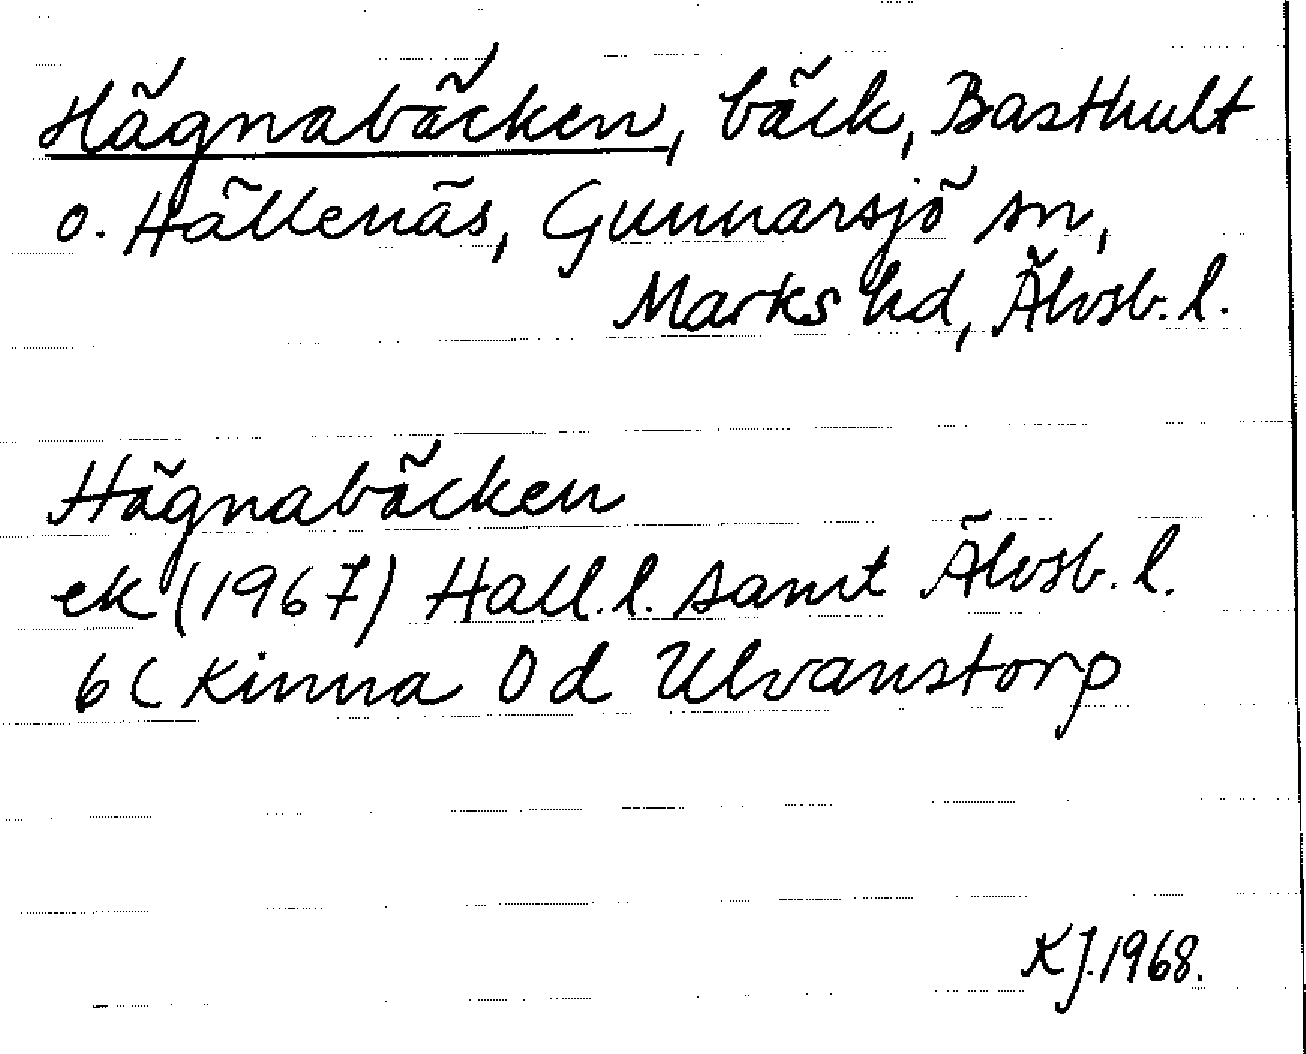 Hägnabäcken, bäck, Basthult
o. Hällenäs, Gunnarsjö sn,
Marks hd, Älvsb. l.
Hägnabäcken
ek (1967) Hall. l. samt Älvsb. l.
6C Kinna 0d Ulvanstorp
KJ. 1968.